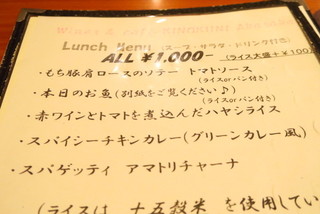 Lunch Menu (スープ・サラダ・ドリンク付き)
ALL ¥1,000- (ライス大盛+¥100
・もち豚肩ロースのソテー トマトソース
(ライスorパン付き)
・本日のお魚(別紙をご覧ください♪)
(ライスorパン付き)
・赤ワインとトマトを煮込んだハヤシライス
・スパイシーチキンカレー(グリーンカレー風)
・スパゲッティ アマトリチャーナ
(ライスは 十五穀米 を使用してい